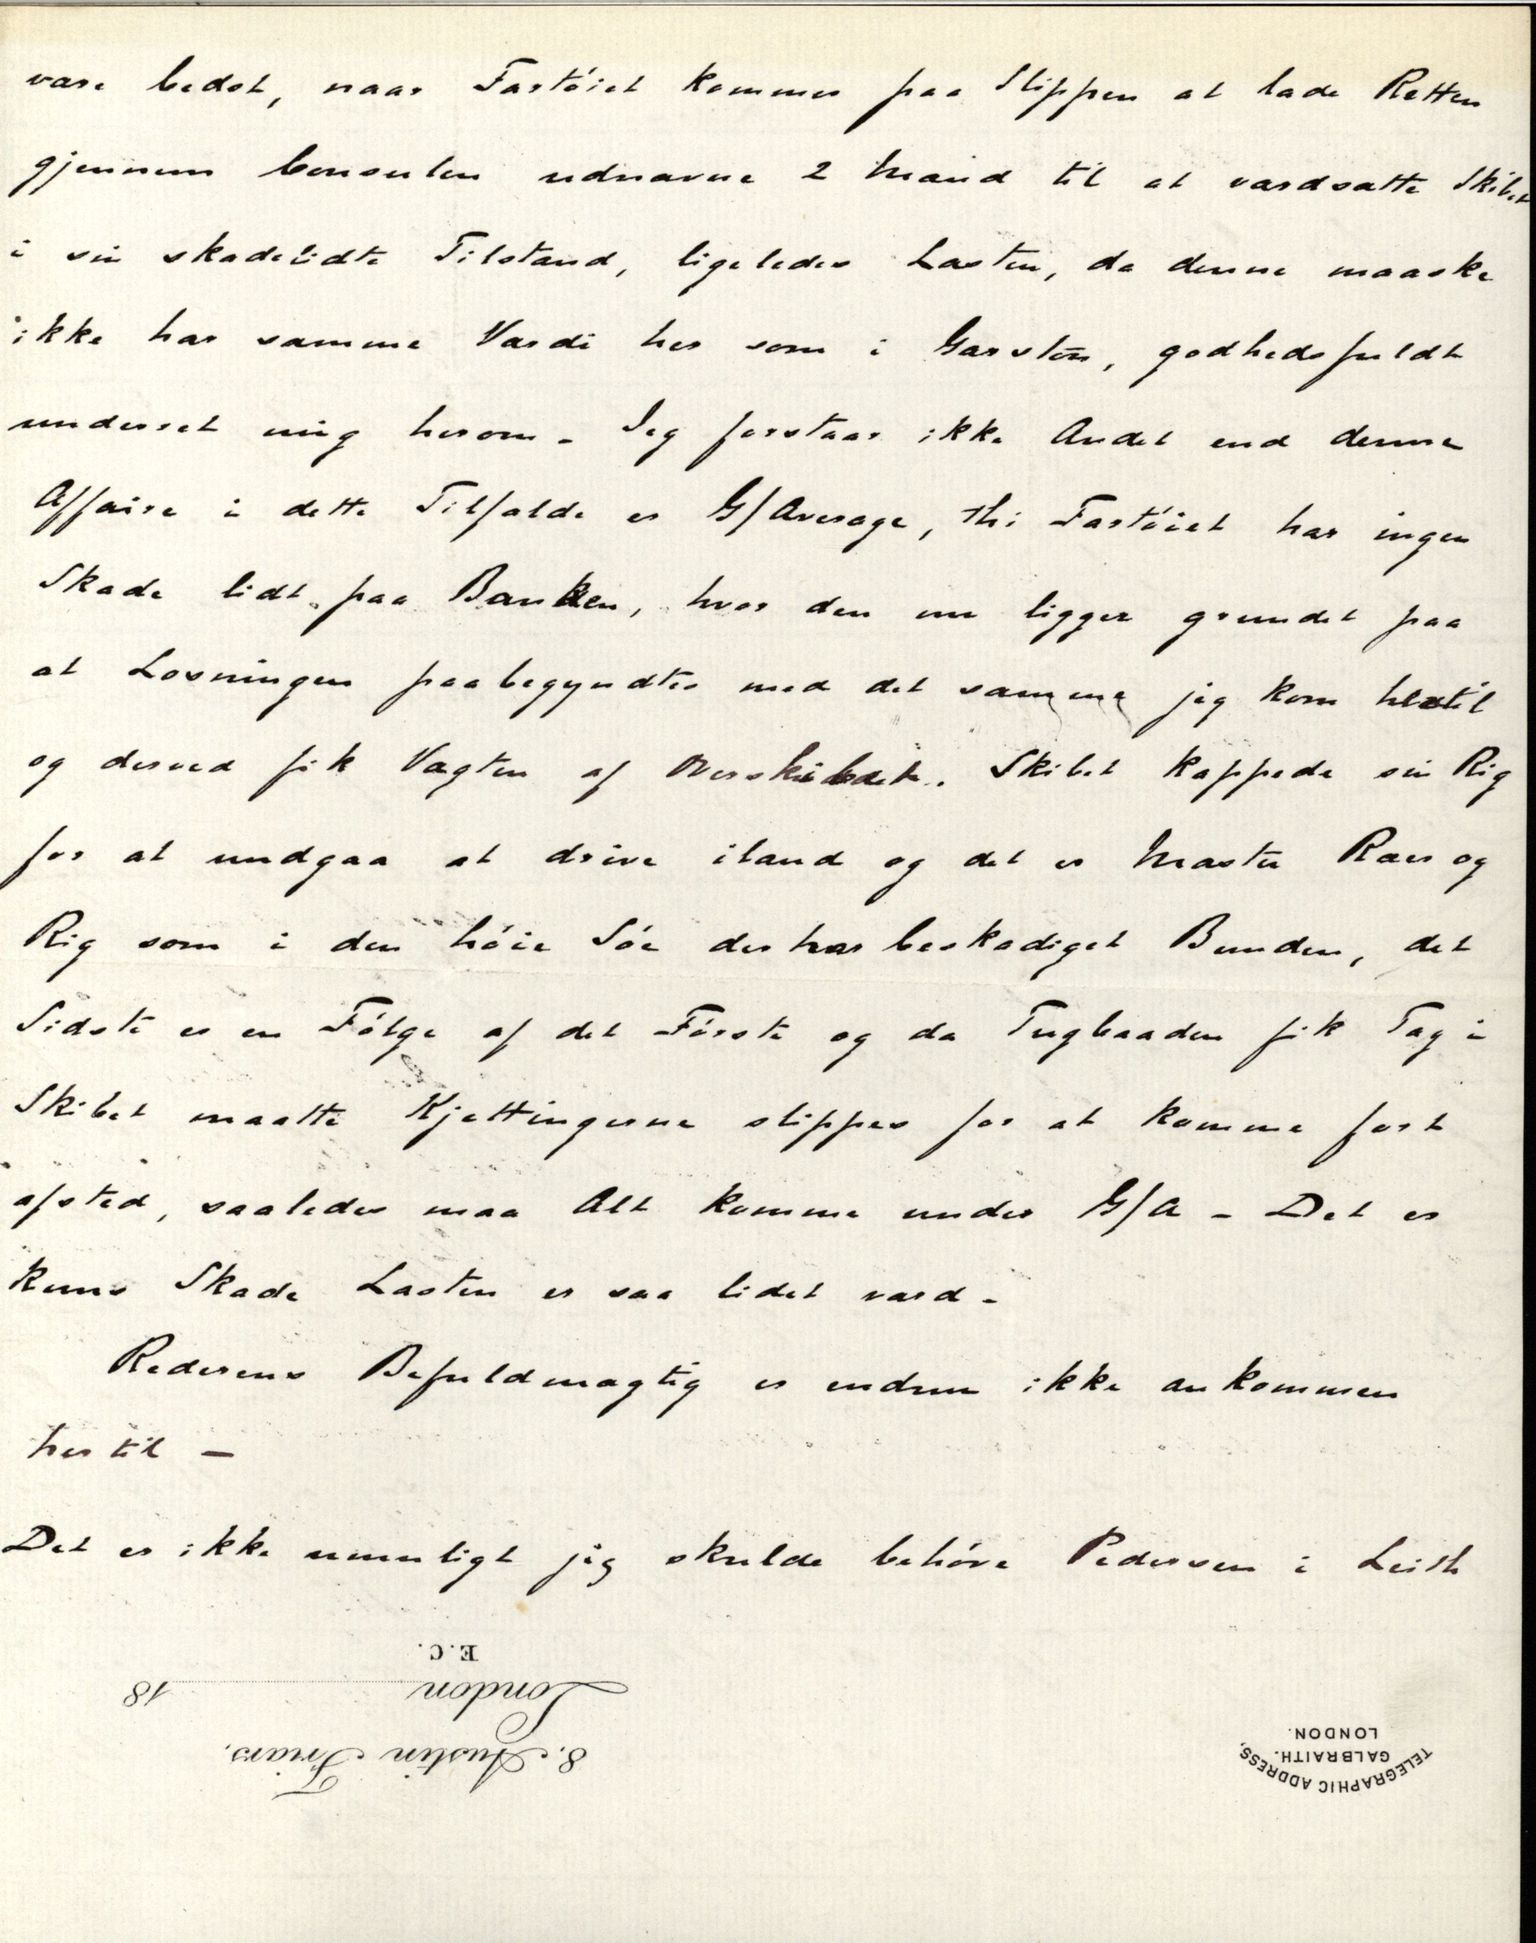 være bedst, naar Fartöiet kommer paa Slippen at lade Retten
gjennem Consulen udnævne 2 Mænd til at værdsætte Skibet
i sin skadelidte Tilstand, ligeledes Lasten, da denne maaske
ikke har samme Værdi her som i Garston, godhedsfuldt
underret mig herom – Jeg forstaar ikke Andet end denne
Affaire i dette Tilfælde er G/Average, thi Fartöiet har ingen
Skade lidt paa Banken, hvor den nu ligger grundet paa
at Losningen paabegyndtes med det samme jeg kom hertil
og derved fik Vægten af Overskibet. Skibet kappede sin Rig
for at undgaa at drive iland og det er Master Raer og
Rig som i den höie Sö der har beskadiget Bunden, det
Sidste er en Fölge af det Förste og da Tugbaaden fik Tag i
Skibet maatte Kjættingerne slippes for at komme fort
afsted, saaledes maa Alt komme under G/A – Det er
kuns Skade Lasten er saa lidet værd –
Rederens Befuldmægtig er endnu ikke ankommen
hertil –
Det er ikke umuligt jeg skulde behöve Pedersen i Leith
8. Austin Friars.
London
E.C.
18
TELEGRAPHIC ADDRESS,
GALBRAITH.
LONDON.